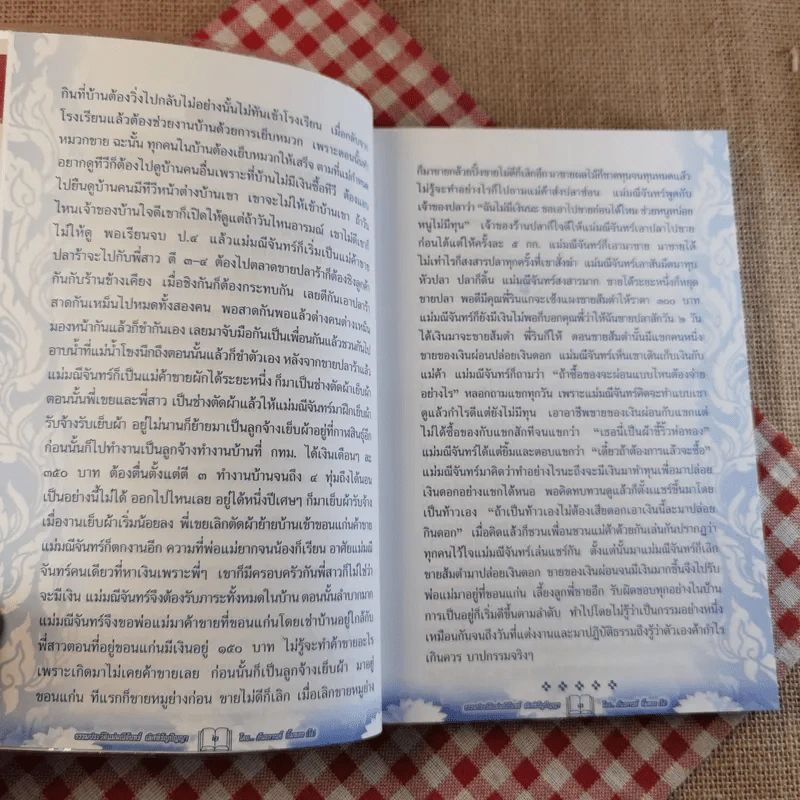 กินที่บ้านต้องวิ่งไปกลับไม่อย่างนั้นไม่ทันเข้าโรงเรียน เมื่อกลับจาก
โรงเรียนแล้วต้องช่วยงานบ้านด้วยการเย็บหมวก เพราะตอนนั้น
หมวกขาย ฉะนั้น ทุกคนในบ้านต้องเย็บหมวกให้เสร็จ ตามที่แม่กำหนด
อยากดูทีวีก็ต้องไปดูบ้านคนอื่นเพราะที่บ้านไม่มีเงินซื้อทีวี ต้อง
ไปยืนดูบ้านคนมีทีวีหน้าต่างบ้านเขา เขาจะไม่ให้เข้าบ้านเขา ถ้าวัน
ไหนเจ้าของบ้านใจดีเขาก็เปิดให้ดูแต่ถ้าวันไหนอารมณ์ เขาไม่ดีเขาก็
ไม่ให้ดู พอเรียนจบ ป.๔ แล้วแม่มณีจันทร์ก็เริ่มเป็นแม่ค้าขาย
ปลาร้าจะไปกับพี่สาว ตี ๓-๔ ต้องไปตลาดขายปลาร้าก็ต้องชิงลูกค้า
กันกับร้านข้างเคียง เมื่อชิงกันก็ต้องกระทบกัน เลยตีกันเอาปลาร้า
สาดกันเหม็นไปหมดทั้งสองคน พอสาดกันพอแล้วต่างคนต่างเหม็น
มองหน้ากันแล้วก็ขำกันเอง เลยมาจับมือกันเป็นเพื่อนกันแล้วชวนกันไป
อาบน้ำที่แม่น้ำโขงนึกถึงตอนนั้นแล้วก็ขำตัวเอง หลังจากขายปลาร้าแล้ว
แม่มณีจันทร์ก็เป็นแม่ค้าขายผักได้ระยะหนึ่ง ก็มาเป็นช่างตัดผ้าเย็บผ้า
ตอนนั้นพี่เขยและพี่สาว เป็นช่างตัดผ้าแล้วให้แม่มณีจันทร์มาฝึกเย็บผ้า
รับจ้างรับเย็บผ้า อยู่ไม่นานก็ย้ายมาเป็นลูกจ้างเย็บผ้าอยู่ที่กาฬสินธุ์อีก
ก่อนนั้นก็ไปทำงานเป็นลูกจ้างทำงานบ้านที่ กทม. ได้เงินเดือนๆ ละ
๓๕๐ บาท ต้องตื่นตั้งแต่ตี ๓ ทำงานบ้านจนถึง ๔ ทุ่มถึงได้นอน
เป็นอย่างนี้ไม่ได้ ออกไปไหนเลย อยู่ได้หนึ่งปีเศษๆ ก็มาเย็บผ้ารับจ้าง
เมื่องานเย็บผ้าเริ่มน้อยลง พี่เขยเลิกตัดผ้าย้ายบ้านเข้าขอนแก่นค้าขาย
แม่มณีจันทร์ก็ตกงานอีก ความที่พ่อแม่ยากจนน้องก็เรียน อาศัยแม่มณี
จันทร์คนเดียวที่หาเงินเพราะพี่ๆ เขาก็มีครอบครัวกันพี่สาวก็ไม่ใช่ว่า
จะมีเงิน แม่มณีจันทร์จึงต้องรับภาระทั้งหมดในบ้าน ตอนนั้นลำบากมาก
แม่มณีจันทร์จึงขอพ่อแม่มาค้าขายที่ขอนแก่นโดยเช่าบ้านอยู่ใกล้กับ
พี่สาวตอนที่อยู่ขอนแก่นมีเงินอยู่ ๑๕๐ บาท ไม่รู้จะทำค้าขายอะไร
เพราะเกิดมาไม่เคยค้าขายเลย ก่อนนั้นก็เป็นลูกจ้างเย็บผ้า มาอยู่
ขอนแก่น ทีแรกก็ขายหมูย่างก่อน ขายไม่ดีก็เลิก เมื่อเลิกขายหมูย่าง
ก็มาขายกล้วยปิ้งขายไม่ดีก็เลิกอีก มาขายผลไม้ก็ขาดทุนจนทุนหมดแล้ว
ไม่รู้จะทำอย่างไรก็ไปถามแม่ค้าส่งปลาช่อน แม่มณีจันทร์พูดกับ
เจ้าของปลาว่า “ฉันไม่มีเงินนะ ขอเอาไปขายก่อนได้ไหม ช่วยหนูหน่อย
หนูไม่มีทุน” เจ้าของร้านปลาก็ใจดีให้แม่มณีจันทร์เอาปลาไปขาย
ก่อนได้แต่ให้ครั้งละ ๕ กก. แม่มณีจันทร์ก็เอามาขาย มาขายได้
ไม่เท่าไรก็สงสารปลาทุกครั้งที่เขาสั่งฆ่า แม่มณีจันทร์เอาสันมีดมาทุบ
หัวปลา ปลาก็ดิ้น แม่มณีจันทร์สงสารมาก ขายได้ระยะหนึ่งก็หยุด
ขายปลา พอดีมีคุณพี่รินแกจะเซ้งแผงขายส้มตำให้ราคา ๓๐๐ บาท
แม่มณีจันทร์ก็ยังมีเงินไม่พอก็บอกคุณพี่ว่าให้ฉันขายปลาสักวัน ๒ วัน
ได้เงินมาจะขายส้มตำ พี่รินก็ให้ ตอนขายส้มตำนั้นมีแขกคนหนึ่ง
ขายของเงินผ่อนปล่อยเงินดอก แม่มณีจันทร์เห็นเขาเดินเก็บเงินกับ
แม่ค้า แม่มณีจันทร์ก็ถามว่า “ถ้าซื้อของจะผ่อนแบบไหนต้องจ่าย
อย่างไร” หลอกถามแขกทุกวัน เพราะแม่มณีจันทร์คิดจะทำแบบเขา
ดูแล้วกำไรดีแต่ยังไม่มีทุน เอาอาชีพขายของเงินผ่อนกับแขกแต่
ไม่ได้ซื้อของกับแขกสักทีจนแขกว่า “เธอนี่เป็นผ้าขี้ริ้วห่อทอง”
แม่มณีจันทร์ได้แต่ยิ้มและตอบแขกว่า “เดี๋ยวถ้าต้องการแล้วจะซื้อ”
แม่มณีจันทร์มาคิดว่าทำอย่างไรนะถึงจะมีเงินมาทำทุนเพื่อมาปล่อย
เงินดอกอย่างแขกได้หนอ พอคิดทบทวนดูแล้วก็ตั้งแชร์ขึ้นมาโดย
เป็นท้าวเอง “ถ้าเป็นท้าวเองไม่ต้องเสียดอกเอาเงินนี้ละมาปล่อย
กินดอก” เมื่อคิดแล้วก็ชวนเพื่อนชวนแม่ค้าด้วยกันเล่นกันปรากฏว่า
ทุกคนไว้ใจแม่มณีจันทร์เล่นแชร์กัน ตั้งแต่นั้นมาแม่มณีจันทร์ก็เลิก
ขายส้มตำมาปล่อยเงินดอก ขายของเงินผ่อนจนมีเงินมากขึ้นจึงไปรับ
พ่อแม่มาอยู่ที่ขอนแก่น เลี้ยงลูกพี่ชายอีก รับผิดชอบทุกอย่างในบ้าน
การเป็นอยู่ก็เริ่มดีขึ้นตามลำดับ ทำไปโดยไม่รู้ว่าเป็นกรรมอย่างหนึ่ง
เหมือนกันจนถึงวันที่แต่งงานและมาปฏิบัติธรรมถึงรู้ว่าตัวเองค้ากำไร
เกินควร บาปกรรมจริงๆ